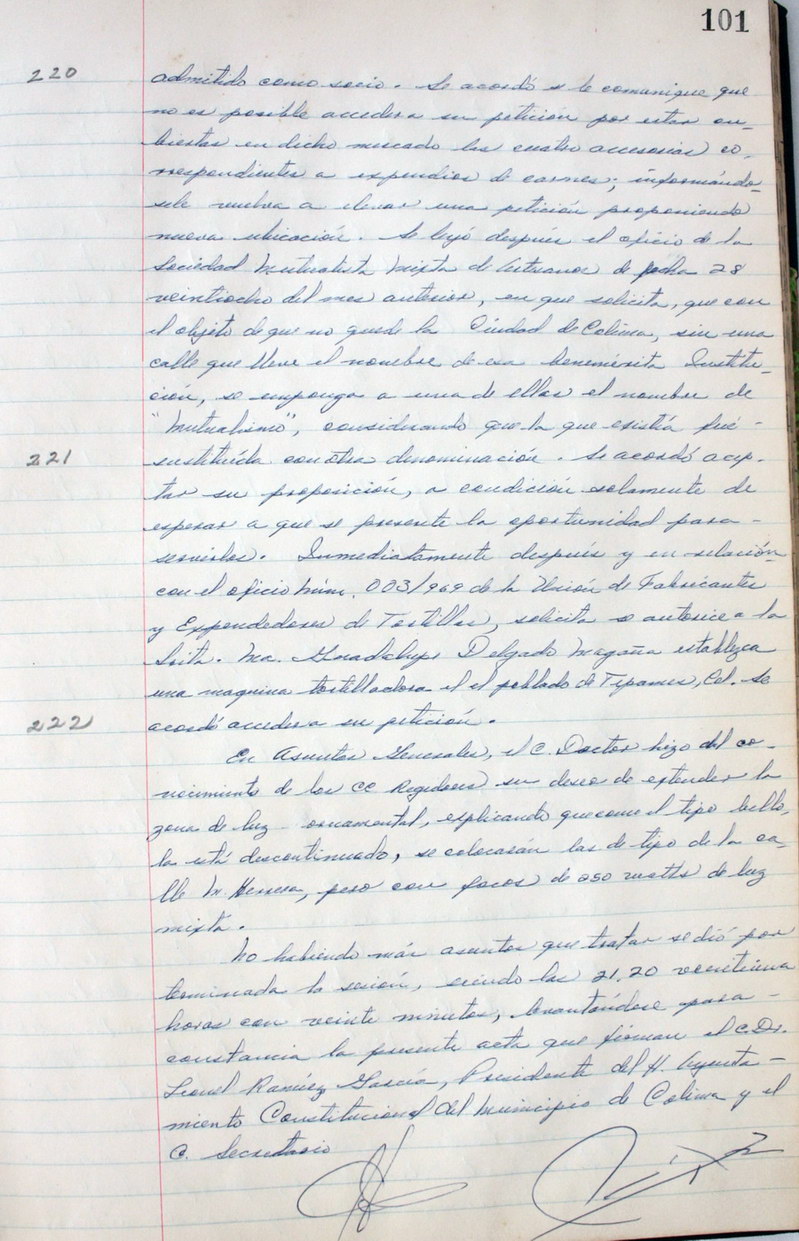 101
220
admitido como socio. Se acordó se le comunique que
no es posible acceder a su petición por estar cu-
biertas en dicho mercado las cuatro accesorias co-
rrespondientes a expendios de carnes; informándo-
sele vuelva a elevar una petición proponiendo
nueva ubicación. Se leyó después el oficio de la
Sociedad Mutualista Mixta de Artesanos de fecha 28
veintiocho del mes anterior, en que solicita, que con
el objeto de que no quede la Ciudad de Colima, sin una
calle que lleve el nombre de esa benemérita Institu-
ción, se imponga a una de ellas el nombre de
"Mutualismo", considerando que la que existía fué -
221
sustituída con otra denominación. Se acordó acep-
tar su proposición, a condición solamente de
esperar a que se presente la oportunidad para -
servirlos. Inmediatamente después y en relación
con el oficio núm. 003/969 de la Unión de Fabricantes
y Expendedores de Tortillas, solicita se autorice a la
Srita. Ma. Guadalupe Delgado Magaña establezca
una maquina tortilladora el el poblado de Tepames, Col. Se
222
acordó acceder a su petición.
En Asuntos Generales, el C. Doctor hizo del co-
nocimiento de los CC Regidores su deseo de extender la
zona de luz ornamental, explicando que como el tipo bello,
la está descontinuado, se colocarán las de tipo de la ca-
lle M. Herrera, pero con focos de 250 watts de luz
mixta.
No habiendo más asuntos que tratar se dió por
terminada la sesión, siendo las 21.20 veintiuna
horas con veinte minutos, levantándose para -
constancia la presente acta que firman el C. Dr.
Leonel Ramírez García, Presidente del H. Ayunta-
miento Constitucional del Municipio de Colima y el
C. Secretario